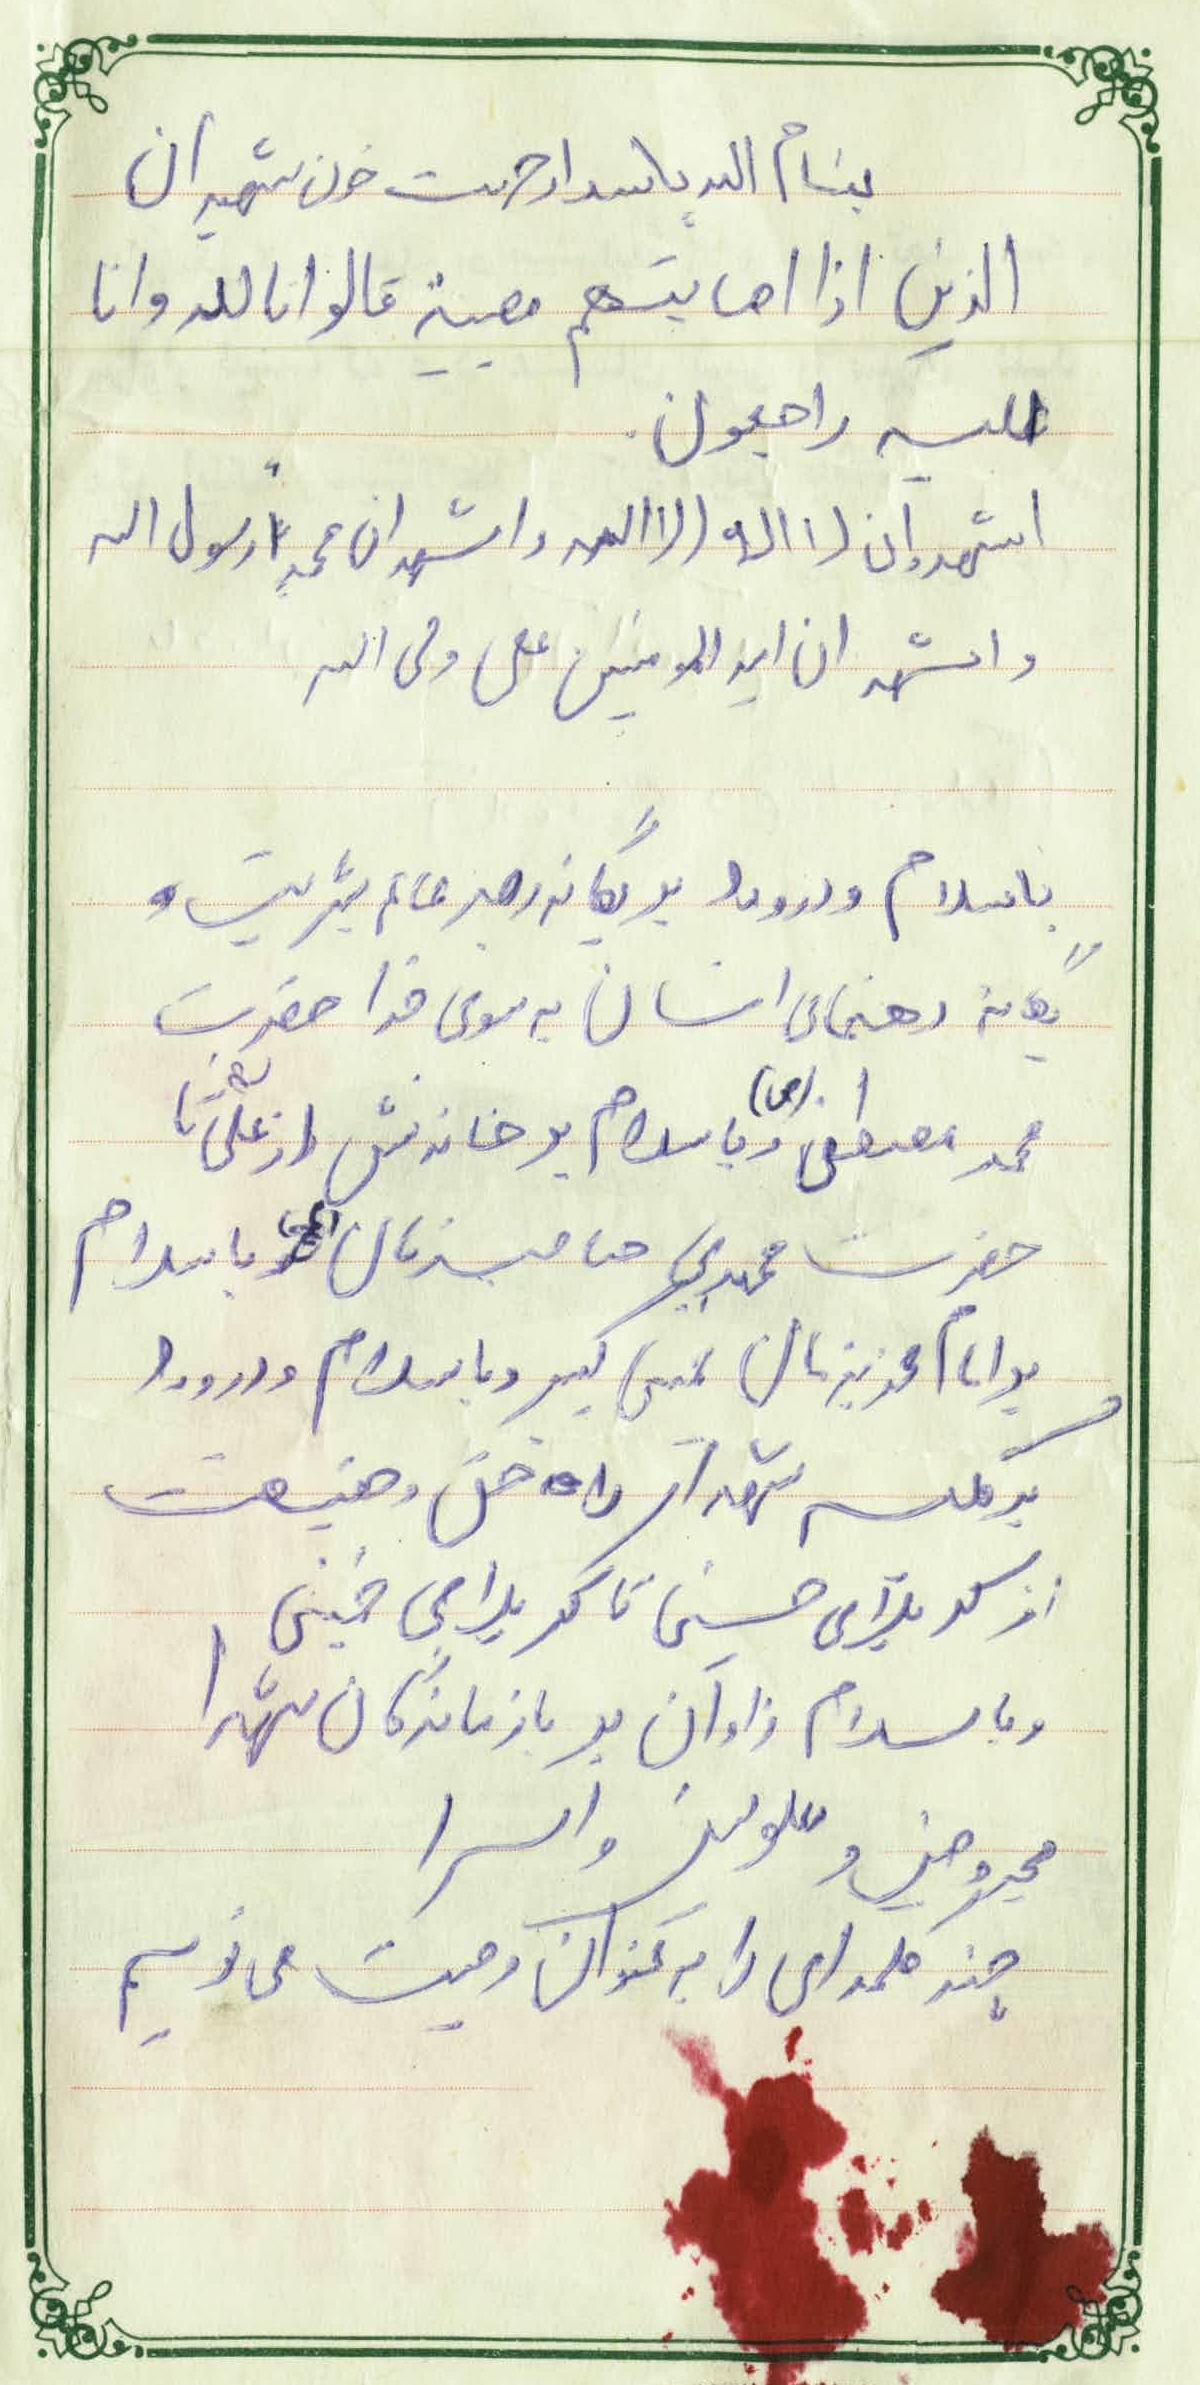 بنام الله پاسدار حرمت خون شهیدان
الذین اذا اصابتهم مصیبة قالوا انا لله وانا
الیه راجعون.
اشهد ان لا اله الا الله و اشهد ان محمداً رسول الله
و اشهد ان امیر المومنین علی ولی الله
با سلام و درود بر یگانه رهبر عالم بشریت و
یگانه رهنمای انسان به سوی خدا حضرت
محمد مصطفی (ص) و با سلام بر خاندنش از علی تا
حضرت مهدی صاحب زمان (عج) با سلام
بر امام عزیزمان خمینی کبیر و با سلام و درود
بر کلیه شهدای راه حق و حقیقت
از کربلای حسینی تا کربلای خمینی
و با سلام فراوان بر بازماندگان شهدا
مجروحین و معلولین و اسرا
چند کلمه ای را به عنوان وصیت می نویسم